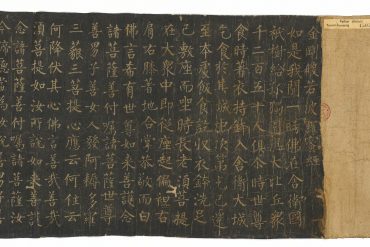 金剛般若波羅蜜經
如是我聞一時佛在舍衛國
祇樹給孤獨園與大比丘眾
千二百五十人俱尒時世尊
食時著衣持鉢入舍衛大城
乞食於其城中次第乞已還
至本處飯食訖收衣鉢洗足
已敷座而坐時長老須菩提
在大眾中即從座起偏袒右
肩右膝著地合掌恭敬而白
佛言希有世尊如來善護念
諸菩薩善付囑諸菩薩世尊
善男子善女人發阿耨多羅
三藐三菩提心應云何住云
何降伏其心佛言善哉善哉
須菩提如汝所說如來善護
念諸菩薩善付囑諸菩薩汝
Pelliot chinois
Touen-houang